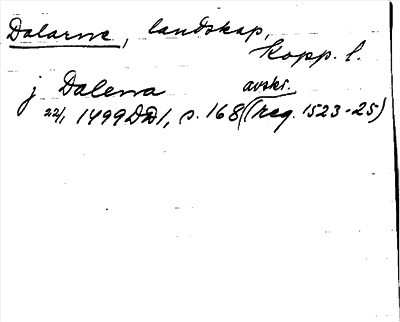 Dalarne, landskap,
Kopp. l.
j Dalerna
avskr.
22/1 1499 DD1, s. 168 (reg. 1523-25)